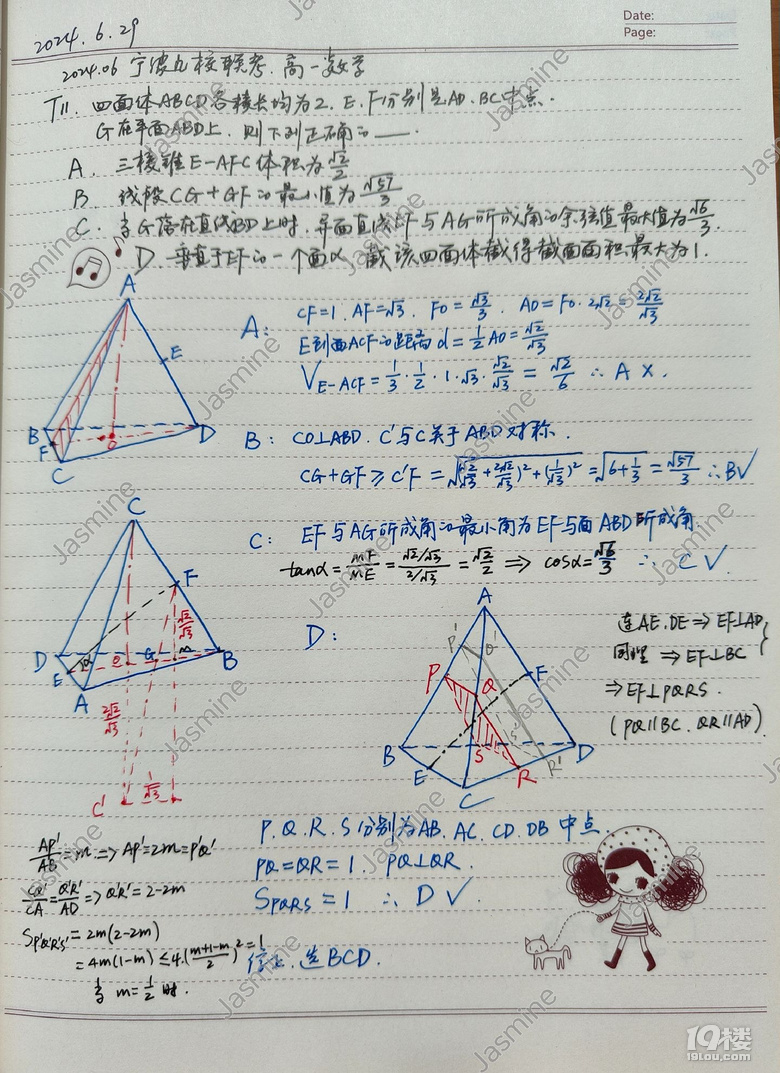 Date:
Page:
2024.6.29
2024.06 宁波九校联考.高一数学
T11. 四面体ABCD各棱长均为2. E、F分别是AD、BC中点.
G在平面ABD上、则下列正确的___.
A. 三棱锥E-AFC体积为√2/2
B. 线段CG+GF的最小值为√57/3
C. 当G落在直线BD上时.异面直线EF与AG所成角的余弦值最大值为√6/3.
D 垂直于EF的一个面α 截该四面体截得截面面积最大为1.
A:
CF=1. AF=√3. FO=√3/3. AO=FO·2√2=2√2/√3
E到面ACF的距离d=1/2AO=√2/√3
V_E-ACF=1/3·1/2·1·√3·√2/√3=√2/6 ∴A×.
A
E
B
F
O
C
D
B: CO⊥ABD. C'与C关于ABD对称.
CG+GF≥C'F=√((√2/√3+2√2/√3)²+(1/√3)²)=√(6+1/3)=√57/3 ∴B√
C: EF与AG所成角的最小角为EF与面ABD所成角.
tanα=MF/ME=(√2/√3)/(2/√3)=√2/2 ⇒ cosα=√6/3 ∴C√
C
F
√2/√3
D
E
α
O
G
M
B
A
2√2/√3
1/√3
C'
D:
A
P'
Q'
P
Q
F
B
S
S'
D
E
R
R'
C
连AE.DE⇒EF⊥AD
同理 ⇒EF⊥BC
⇒EF⊥PQRS.
(PQ∥BC、QR∥AD)
P.Q.R.S分别为AB.AC.CD.DB中点
PQ=QR=1. PQ⊥QR.
S_PQRS=1 ∴D√.
AP'/AB=m⇒AP'=2m=P'Q'
CQ'/CA=Q'R'/AD⇒Q'R'=2-2m
S_P'Q'R'S'=2m(2-2m)
=4m(1-m)≤4·((m+1-m)/2)²=1
当 m=1/2 时.
综上.选BCD.
19楼
19lou.com
Jasmine